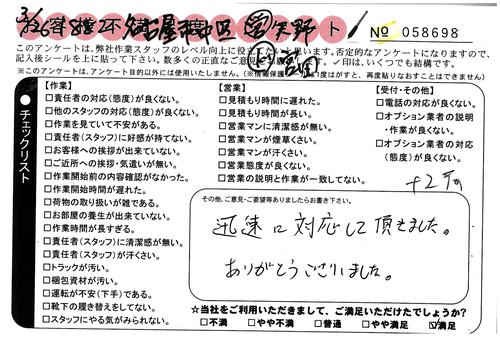 名古屋市中区 営 矢野
ト
№ 058698
このアンケートは、弊社作業スタッフのレベル向上に役立
否定的なアンケートになりますので、
記入後シールを上に貼って下さい。数多くの正直なご意見
✓印は、いくつでも結構です。
※このアンケートは、アンケート目的以外には使用いたしません。
はがすと、再度貼りなおすことはできません)
●チェックリスト
【作業】
□責任者の対応(態度)が良くない。
□他のスタッフの対応(態度)が良くない。
□作業を見ていて不安がある。
□責任者(スタッフ)に好感が持てない。
□お客様への挨拶が出来ていない。
□ご近所への挨拶・気遣いが無い。
□作業開始前の内容確認がなかった。
□作業開始時間が遅れた。
□荷物の取り扱いが雑である。
□お部屋の養生が出来ていない。
□作業時間が長すぎる。
□責任者(スタッフ)に清潔感が無い。
□責任者(スタッフ)が汗くさい。
□トラックが汚い。
□梱包資材が汚い。
□運転が不安(下手)である。
□靴下の履き替えをしてない。
□スタッフにやる気がみられない。
【営業】
□見積もり時間に遅れた。
□見積もり時間が長い。
□営業マンに清潔感が無い。
□営業マンが煙草くさい。
□営業マンが汗くさい。
□営業態度が良くない。
□営業の説明と作業が一致してない。
【受付・その他】
□電話の対応が良くない。
□オプション業者の説明
・作業が良くない。
□オプション業者の対応
(態度)が良くない。
その他、ご意見・ご要望等ありましたらお書き下さい。
迅速に対応して頂きました。
ありがとうございました。
☆当社をご利用いただきまして、ご満足いただけたでしょうか?
□不満 □やや不満 □普通 □やや満足 ☑満足